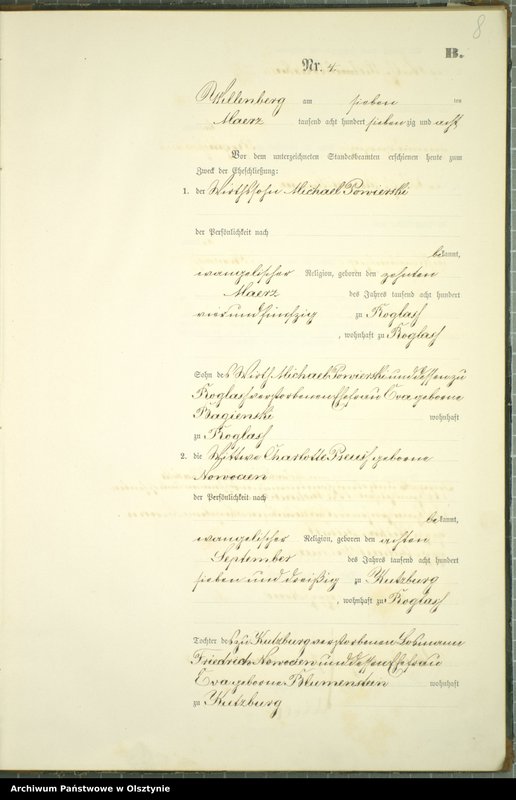 8
B.
Nr. 4.
Willenberg am sieben ten
Maerz tausend acht hundert siebenzig und acht
Vor dem unterzeichneten Standesbeamten erschienen heute zum
Zweck der Eheschließung:
1. der Wirthssohn Michael Powierski
der Persönlichkeit nach
bekannt,
evangelischer Religion, geboren den zehnten
Maerz des Jahres tausend acht hundert
vier und fünfzig zu Röglass
, wohnhaft zu Röglass
Sohn des Wirth Michael Powierski und dessen zu
verstorbenen Ehefrau Eva geborene
Bagienski wohnhaft
zu
2. die Wittwe Charlotte Preuss geborene
Nowoczen
der Persönlichkeit nach
bekannt,
evangelischer Religion, geboren den achten
September des Jahres tausend acht hundert
sieben und dreißig zu Kutzburg
, wohnhaft zu
Tochter des zu Kutzburg verstorbenen Losmann
Friedrich Nowoczen und dessen Ehefrau
Eva geborne Blumenstein wohnhaft
zu Kutzburg
Archiwum Państwowe w Olsztynie